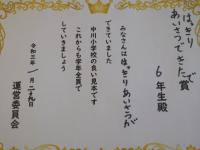 はっきり
あいさつできたで賞
6年生殿
みなさんははっきりあいさつが
できていました
中川小学校の良い見本です
これからも学年全員で
していきましょう
令和三年一月二十九日
運営委員会